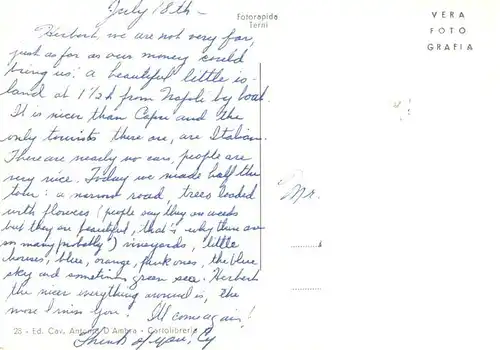 July 18th -
Fotorapida
Terni
VERA
FOTO
GRAFIA
Herbert, we are not very far,
just as far as our money could
bring us: a beautiful little is-
land at 1½ h from Napoli by boat.
It is nicer than Capri and the
only tourists there are, are Italian.
There are nearly no cars, people are
very nice. Today we made half the
tour: a narrow road, trees loaded
with flowers (people say they are weeds
but they are beautiful, that is why there are
so many probably) vineyards, little
houses, blue, orange, pink ones, the blue
sky and sometimes green sea. Herbert
the nicer everything around is, the
more I miss you! I'll come again!
Think of you, Cy
Mr.
28 - Ed. Cav. Antonio D'Ambra - Cartolibreria